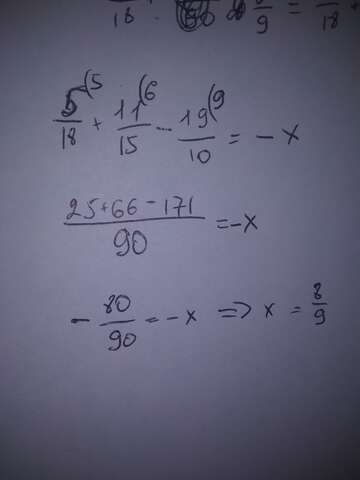 5/18 (5 + 11/15 (6 - 19/10 (9 = - x
25+66-171/90 = -x
- 80/90 = - x => x = 8/9